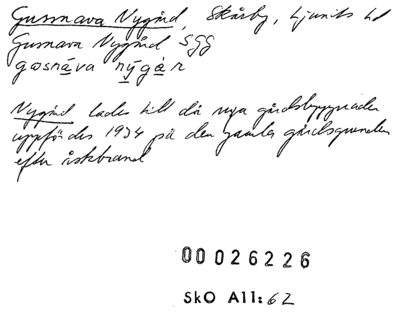 Gussnava Nygård, Skårby, Ljunits hd
Gussnava Nygård sgg
gosnáva nýgár
Nygård lades till då nya gårdsbyggnader
uppfördes 1934 på den gamla gårdsgrunden
efter åskbrand
00026226
SkO All: 62